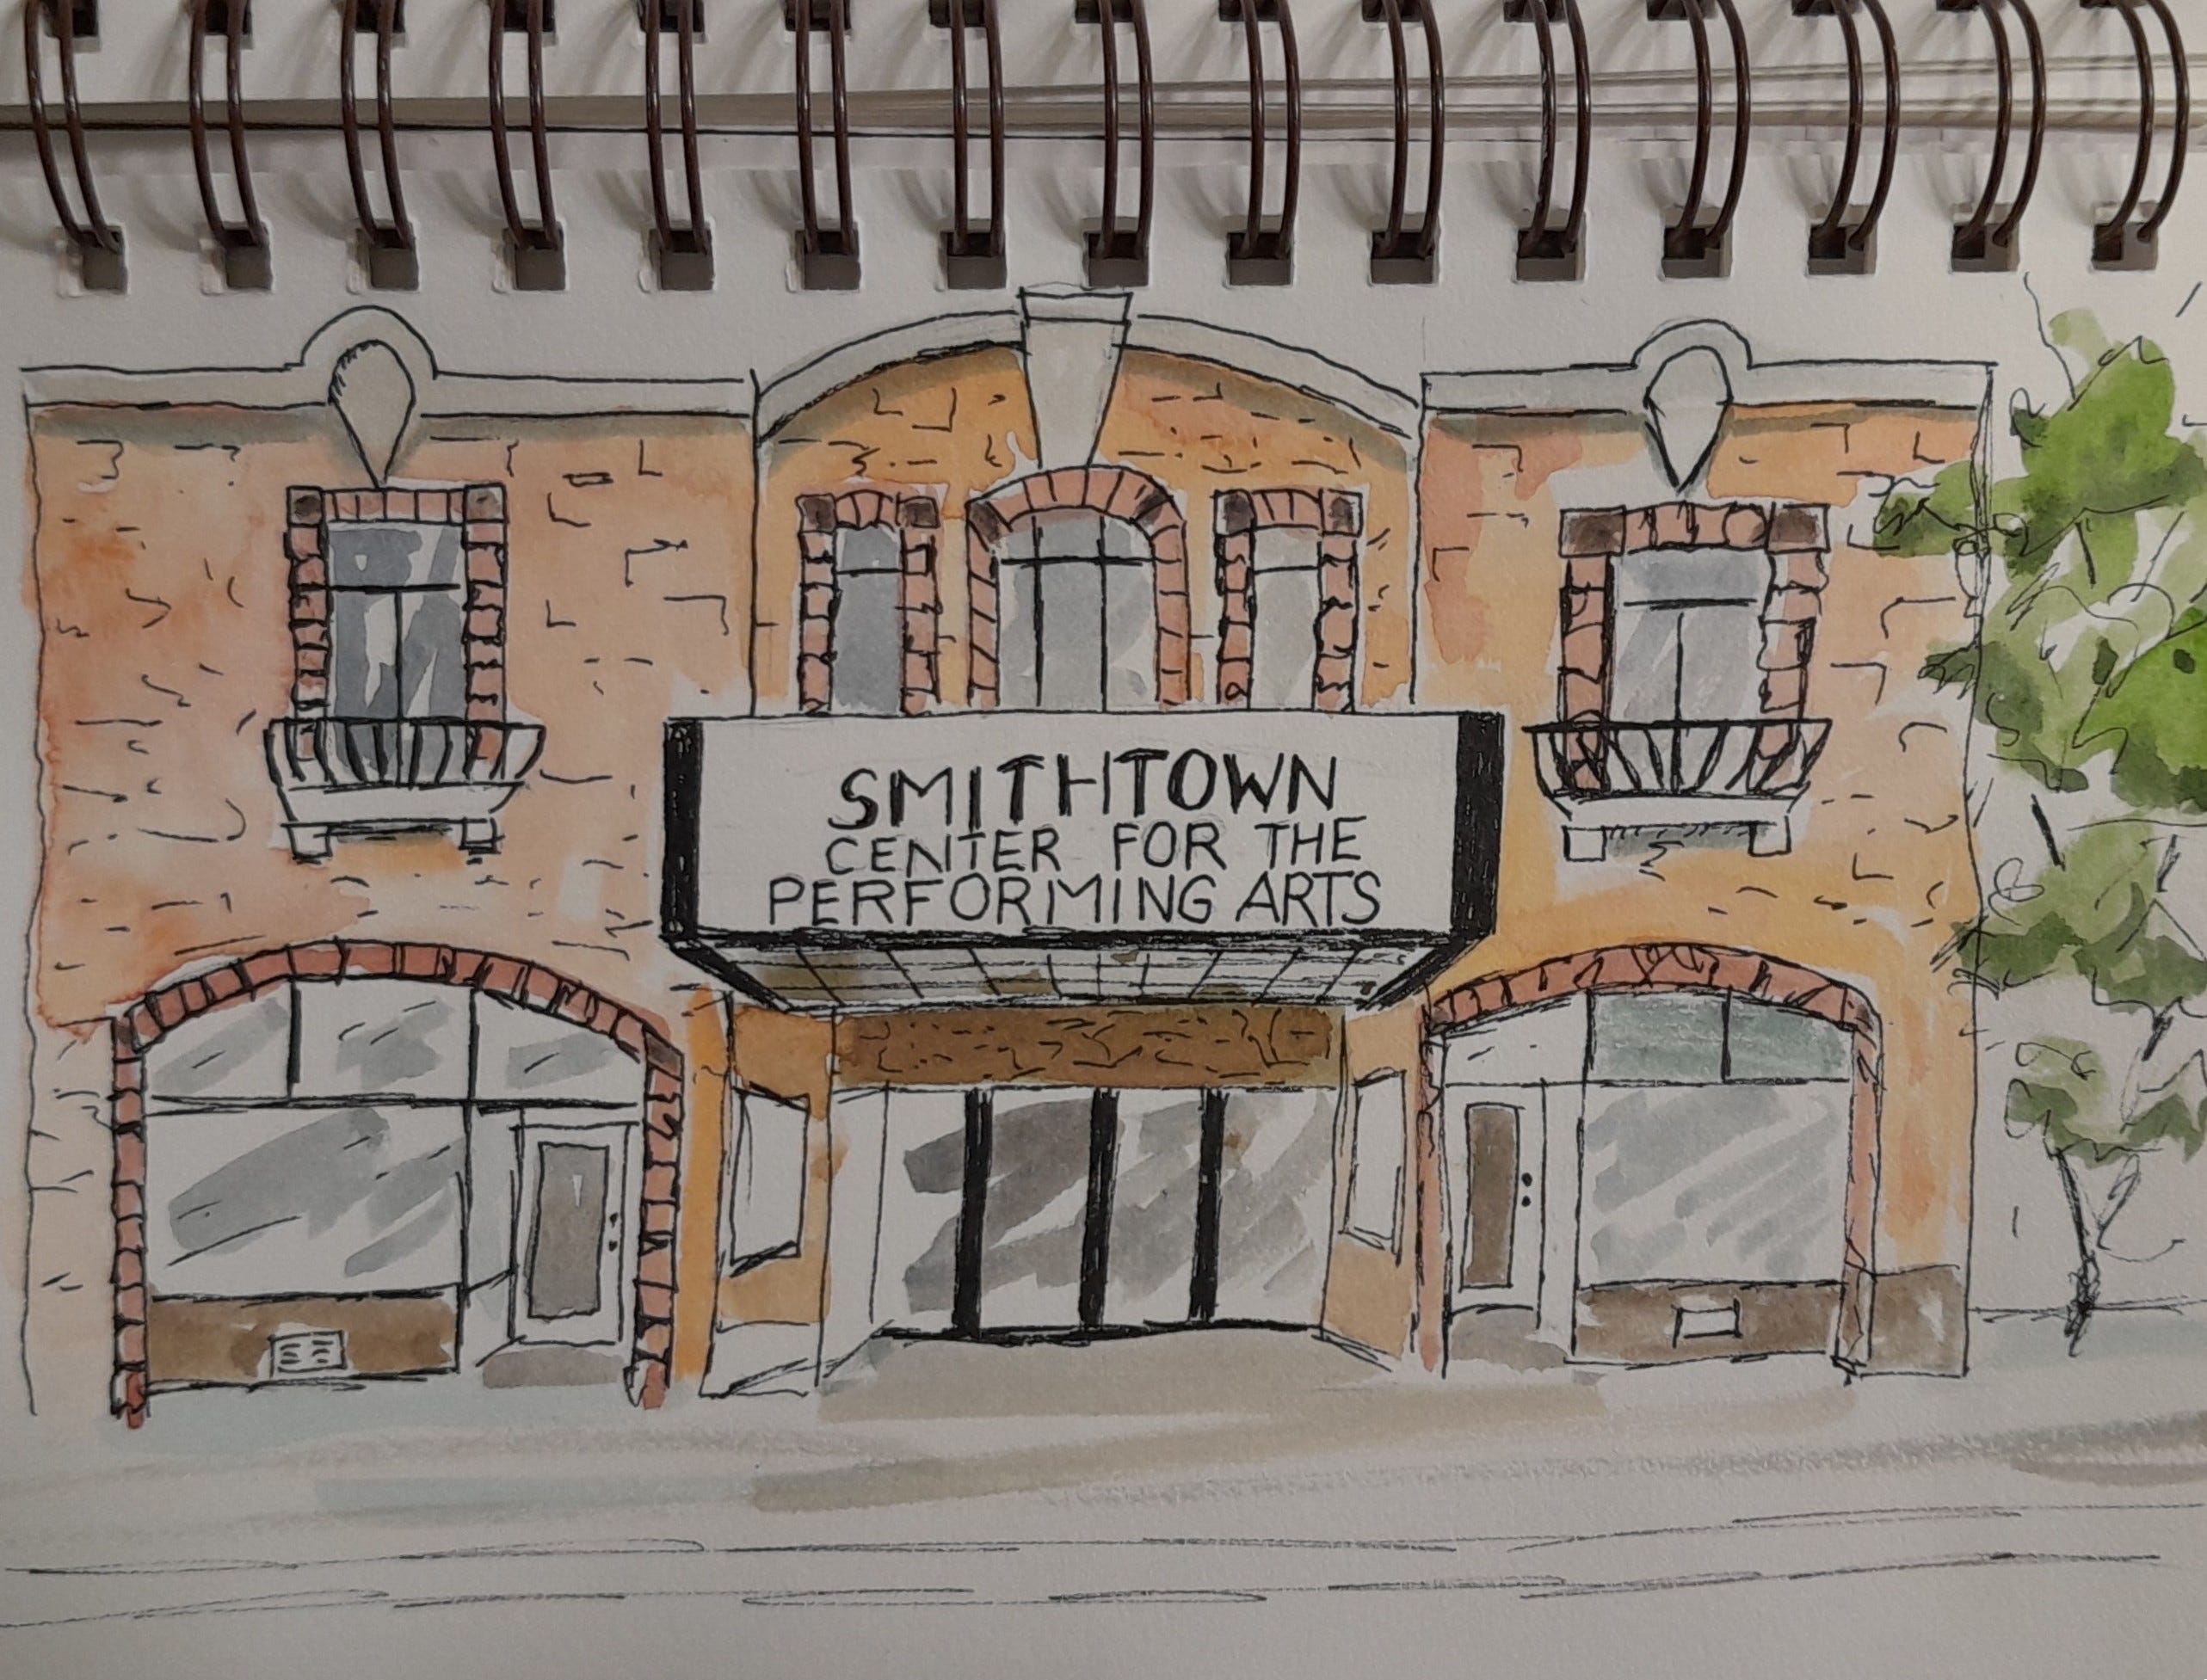 SMITHTOWN
CENTER FOR THE
PERFORMING ARTS